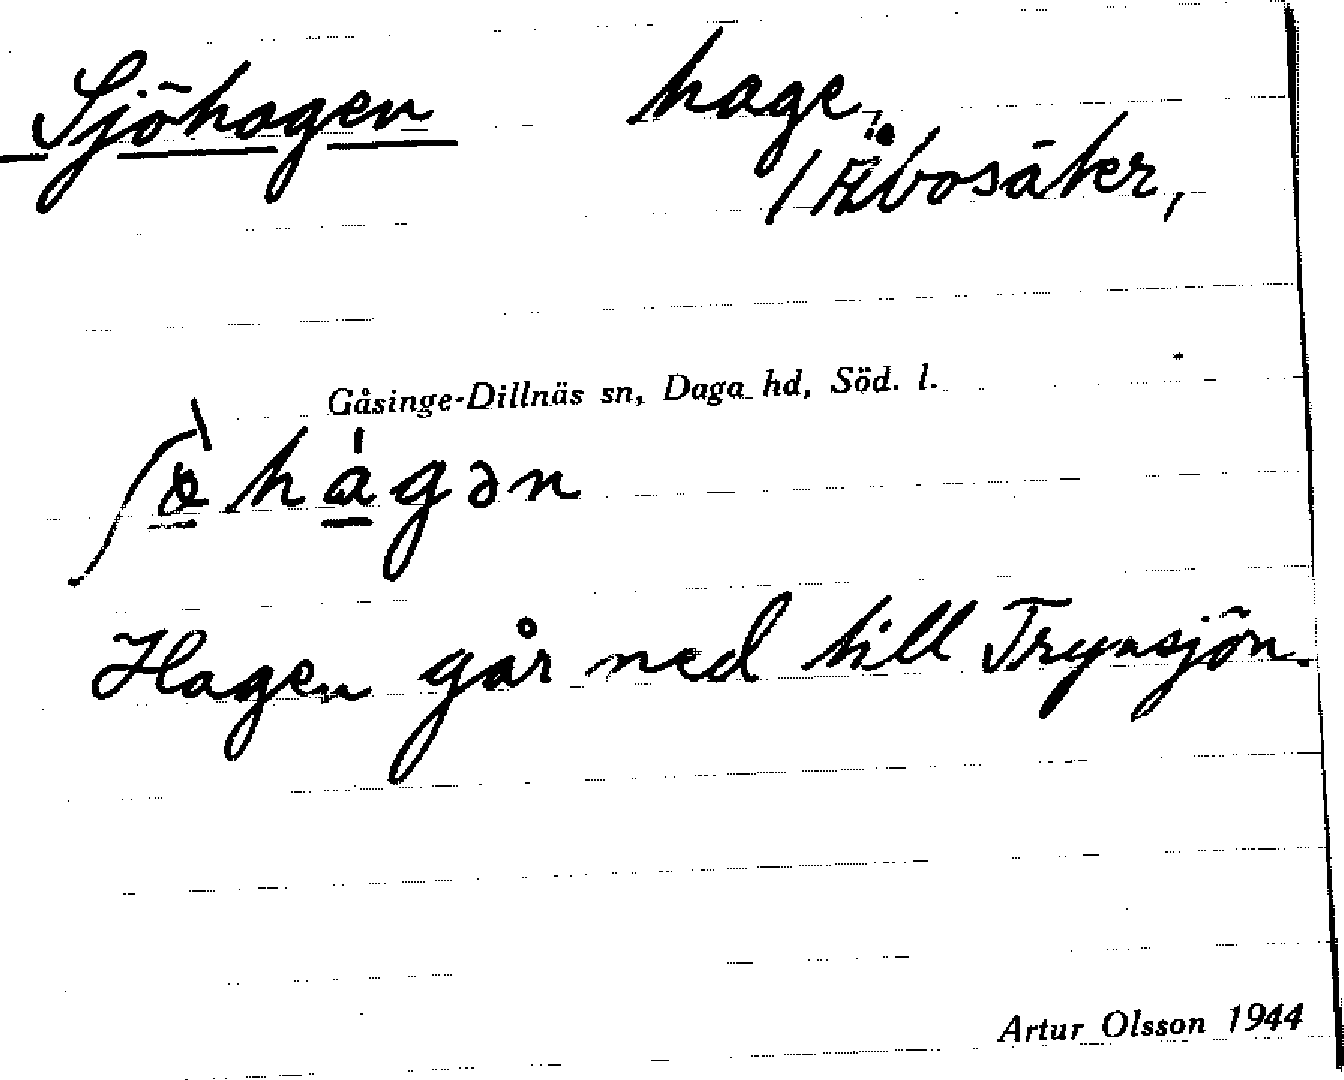 Sjöhagen hage,
1 Åbosäter,
Gåsinge-Dillnäs sn, Daga hd, Söd. l.
Hagen går ned till Trynsjön.
Artur Olsson 1944